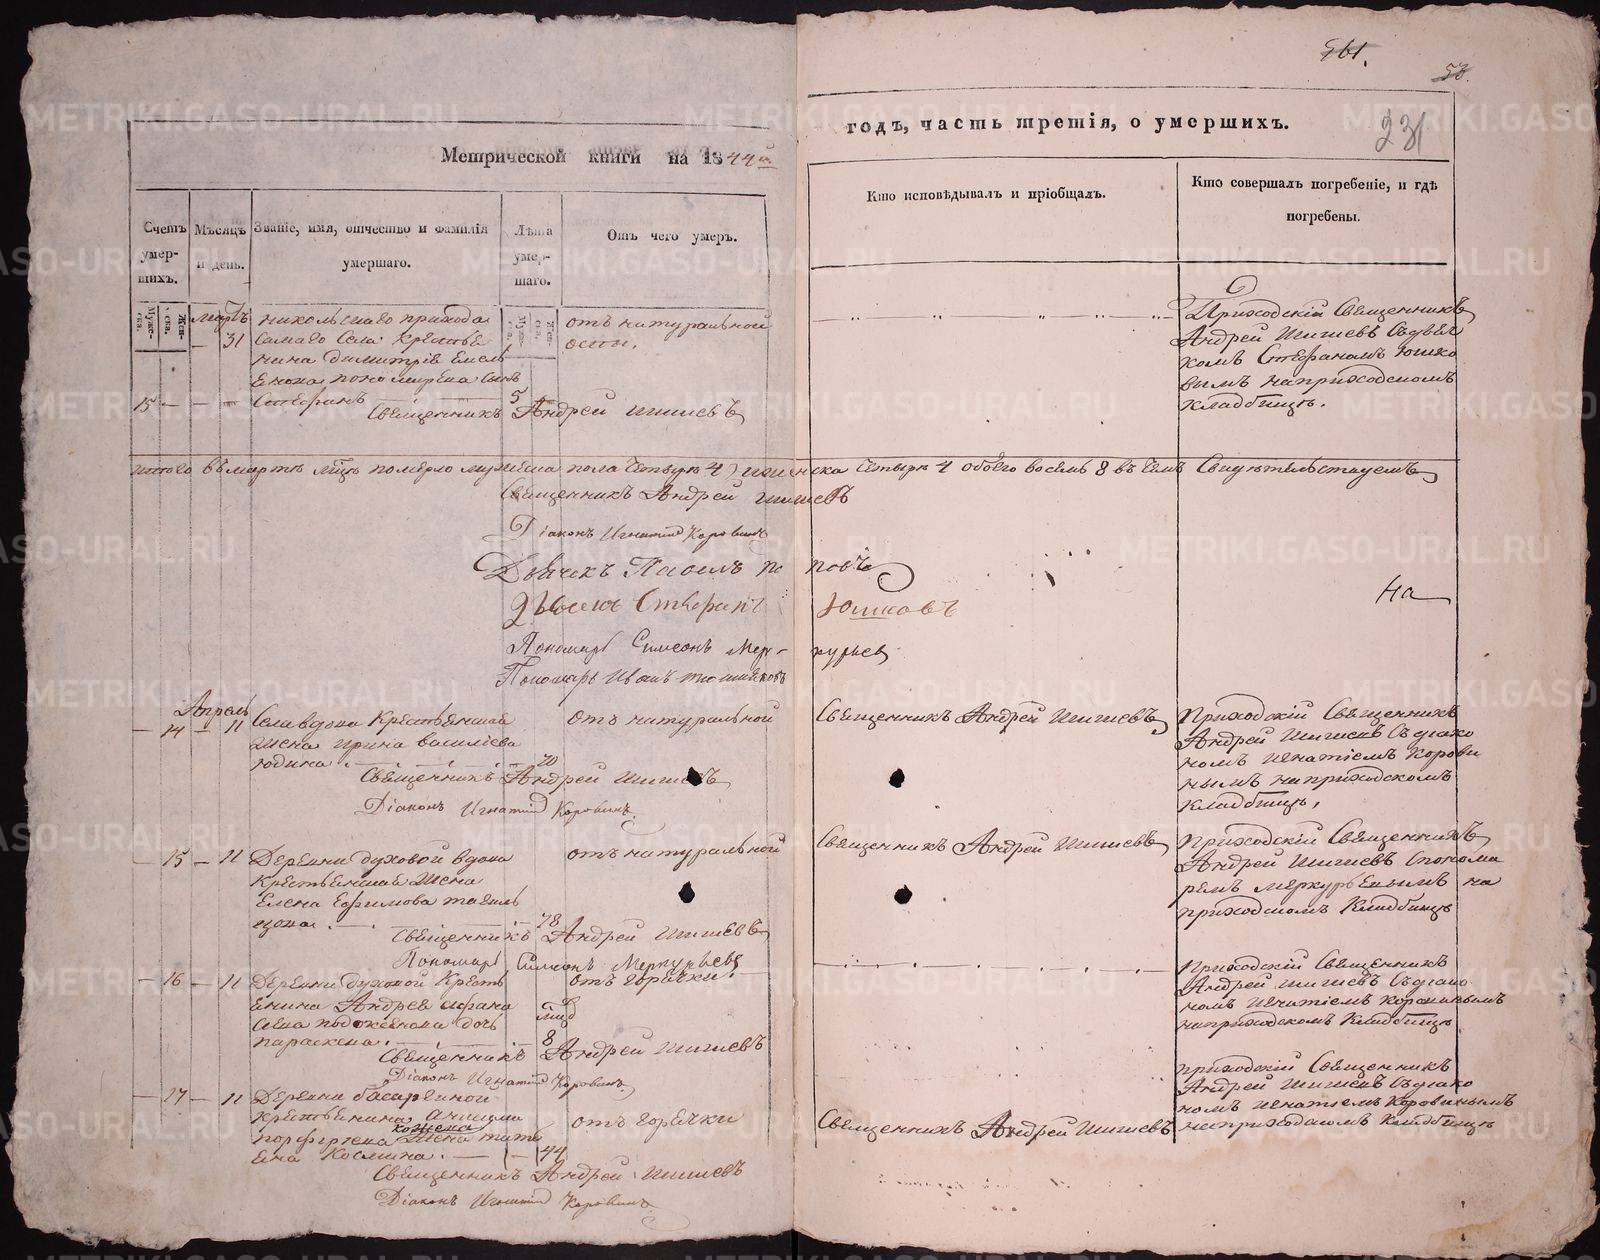 Метрической книги на 1844й
годъ, часть третія, о умершихъ.
231
Счетъ умершихъ.
Мужеска.
Женска.
Мѣсяцъ и день.
Званіе, имя, отчество и фамилія умершаго.
Лѣта умершаго.
Отъ чего умеръ.
Кто исповѣдывалъ и пріобщалъ.
Кто совершалъ погребеніе, и гдѣ погребены.
Мартъ
31
никольскаго прихода
самаго Села крестья
нина Димитрія Емель
янова пономарева сынъ
15 Стефанъ 5
отъ натуральной
оспы.
Священникъ Андрей Шишевъ
Приходскій Священникъ
Андрей Шишевъ Съдьяч
комъ Стефаномъ Юшко
вымъ наприходскомъ
кладбищѣ.
итого въмартѣ мцѣ померло мужеска пола четыре 4 женска четыре 4 обоего восемь 8 въ чемъ Свидѣтельствуемъ
Священникъ Андрей Шишевъ
Діаконъ Игнатій Коровинъ
Дьячекъ Павелъ Поповъ
Дьячекъ Стефанъ Юшковъ
Пономарь Симеонъ Меркурьев
Пономарь Иванъ
На
Апрель
14 11
Села вдова Крестьянская
Жена Ирина васильева
юдина 70
отъ натуральной
Священникъ Андрей Шишевъ
Діаконъ Игнатій Коровинъ.
Священникъ Андрей Шишевъ
Приходскій Священникъ
Андрей Шишевъ Съдіако
номъ Игнатіемъ Корови
нымъ наприходскомъ
кладбищѣ,
15 11
Деревни духовой вдова
крестьянская Жена
Елена Ефимова
78
отъ натуральной
Священникъ Андрей Шишевъ
Пономарь Симеонъ Меркурьевъ
Священникъ Андрей Шишевъ
приходскій Священникъ
Андрей Шишевъ Спонома
ремъ меркурьевымъ на
приходскомъ Кладбищѣ
16 11
Деревни духовой Кресть
янина Андрея афана
сьева подоксенова дочь
параскева. мцъ 8
отъ горячки.
Священникъ Андрей Шишевъ
Діаконъ Игнатій Коровинъ.
Приходскій Священникъ
Андрей шишевъ Съдіако
номъ Игнатіемъ коровинымъ
наприходскомъ Кладбищѣ
17 11
Деревни
крестьянина
порфирьева Жена тать
яна Космина. 44
отъ горячки
Священникъ Андрей Шишевъ
Діаконъ Игнатій Коровинъ
Священникъ Андрей Шишевъ
приходскій Священникъ
Андрей Шишевъ Съдіако
номъ Игнатіемъ Коровинымъ
наприходскомъ Кладбищѣ
METRIKI.GASO-URAL.RU